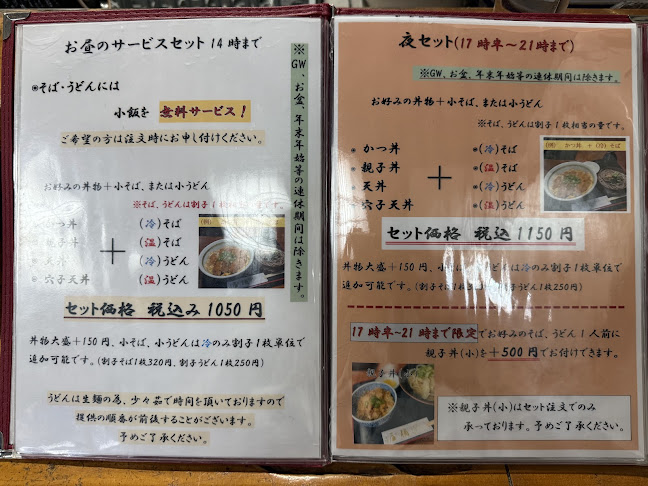 お昼のサービスセット 14時まで
◉そば・うどんには
小飯を 無料サービス!
ご希望の方は注文時にお申し付けください。
お好みの丼物+小そば、または小うどん
※そば、うどんは割子1枚相当の量です。
かつ丼
親子丼
天丼
穴子天丼
+
(冷)そば
(温)そば
(冷)うどん
(温)うどん
セット価格 税込み1050円
丼物大盛+150円、小そば、小うどんは冷のみ割子1枚単位で
追加可能です。(割子そば1枚320円、割子うどん1枚250円)
うどんは生麺の為、少々茹で時間を頂いておりますので
提供の順番が前後することがございます。
予めご了承ください。
※GW、お盆、年末年始等の連休期間は除きます。
夜セット(17時半~21時まで)
※GW、お盆、年末年始等の連休期間は除きます。
お好みの丼物+小そば、または小うどん
※そば、うどんは割子1枚相当の量です。
かつ丼
親子丼
天丼
穴子天丼
+
(冷)そば
(温)そば
(冷)うどん
(温)うどん
(例) かつ丼 + (冷)そば
セット価格 税込1150円
丼物大盛+150円、小そば、小うどんは冷のみ割子1枚単位で
追加可能です。(割子そば1枚320円、割子うどん1枚250円)
17時半~21時まで限定でお好みのそば、うどん1人前に
親子丼(小)を+500円でお付けできます。
※親子丼(小)はセット注文でのみ
承っております。予めご了承ください。